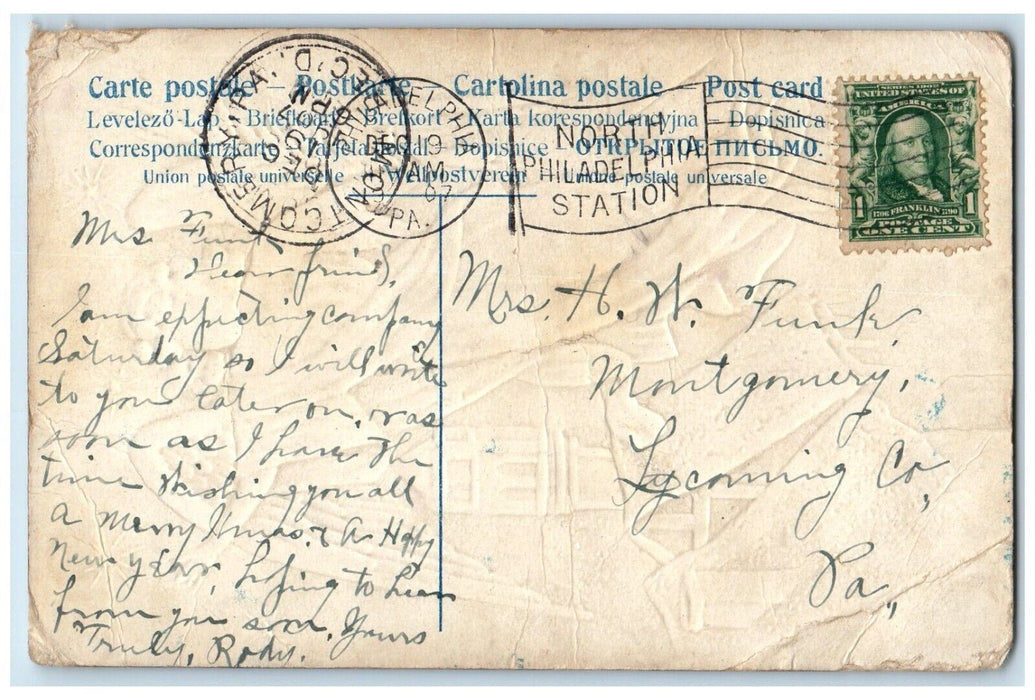 Carte postale — Postkarte — Cartolina postale — Post card
Levelező-Lap — Briefkaart — Brefkort — Karta korespondencyjna — Dopisnica
Correspondenzkarte — Tarjeta postal — Dopisnice — ОТКРЫТОЕ ПИСЬМО.
Union postale universelle — Weltpostverein — Unione postale universale
MONTGOMERY, PA. REC'D.
PHILADELPHIA, PA.
DEC 19
AM
07
NORTH
PHILADELPHIA
STATION
UNITED STATES OF
AMERICA
1 1706 FRANKLIN 1790 1
POSTAGE
ONE CENT
Mrs. Funk
Dear friend,
I am expecting company
Saturday so I will write
to you later on, or as
soon as I have the
time Wishing you all
a Merry Xmas. & A Happy
New Year, hoping to hear
from you soon, Yours
Truly, Rody.
Mrs. H. W. Funk
Montgomery,
Lycoming Co,
Pa,